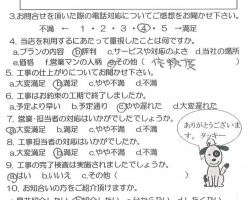 3.お問合せを頂いた際の電話対応についてご感想をお聞かせ下さい。
不満 ← 1・2・3・④・5 →満足
4.当店を利用するにあたって重視したことは何ですか。
a.プランの内容 ⓑ評判 c.サービスや対応のよさ d.当社の場所
e.価格 f.営業マンの人柄 ⓖその他（
5.工事の仕上がりについてお聞かせ下さい。
a.大変満足 ⓑ満足 c.やや不満 d.不満
6.工事はお約束の工期で終了しましたか。
a.予定より早い b.予定通り ⓒやや遅れた d.大変遅れた
7.営業・担当者の対応はいかがでしたでしょうか。
ⓐ大変満足 b.満足 c.やや不満 d.不満
8.工事担当者の対応はいかがでしたか。
a.大変満足 ⓑ満足 c.やや不満 d.不満
9.工事の完了検査は実施されましたでしょうか。
ⓐはい b.いいえ c.その他（
10.お知合いの方をご紹介頂けますか。
ありがとうございます。タッキー